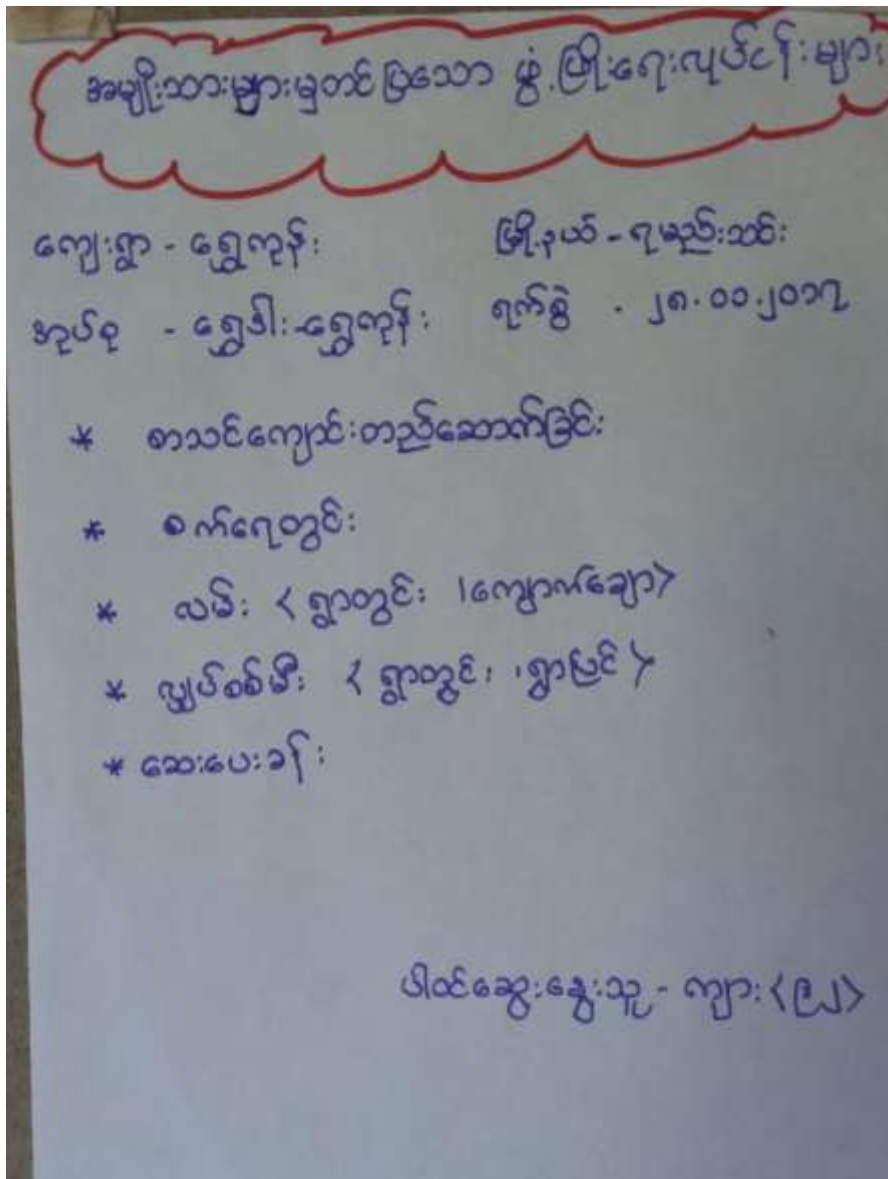 အမျိုးသားများမှတင်ပြသော ဖွံ့ဖြိုးရေးလုပ်ငန်းများ
ကျေးရွာ - ရွှေကုန်း မြို့နယ် - ရမည်းသင်း
အုပ်စု - ရွှေဒါး-ရွှေကုန်း ရက်စွဲ - ၂၈.၁၁.၂၀၁၇
* စာသင်ကျောင်းတည်ဆောက်ခြင်း
* စက်ရေတွင်း
* လမ်း <ရွာတွင်း ၊ကျောက်ချော>
* လျှပ်စစ်မီး <ရွာတွင်း ၊ရွာပြင်>
* ဆေးပေးခန်း
ပါဝင်ဆွေးနွေးသူ - ကျား <၉၂>